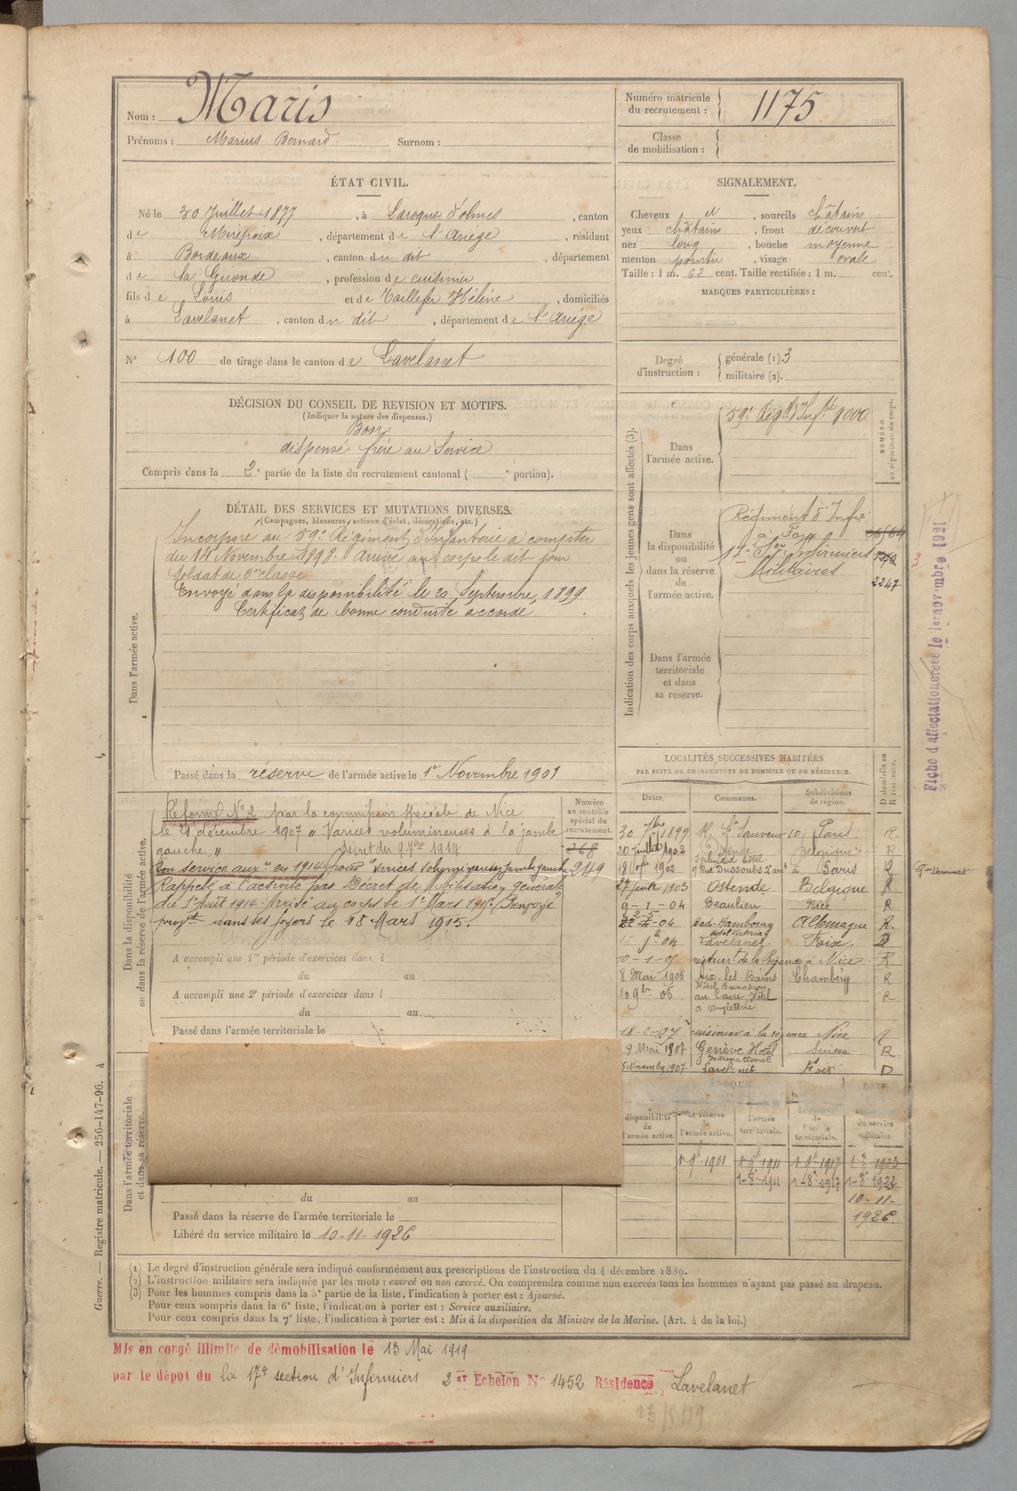 Nom : Maris
Prénoms : Marius Bernard. Surnom :
Numéro matricule du recrutement : 1175
Classe de mobilisation :
ÉTAT CIVIL.
Né le 30 Juillet 1877, à Laroque d'olmes, canton
de Mirepoix, département de l'Ariège, résidant
à Bordeaux, canton du dit, département
de la Gironde, profession de cuisinier
fils de Louis et de Taillefer Hélène, domiciliés
à Lavelanet, canton du dit, département de l'Ariège
N° 100 de tirage dans le canton de Lavelanet
SIGNALEMENT.
Cheveux et, sourcils châtains
yeux châtains, front découvert
nez long, bouche moyenne
menton pointu, visage ovale
Taille : 1 m. 62 cent. Taille rectifiée : 1 m. cent.
MARQUES PARTICULIÈRES :
Degré d'instruction : générale (1). 3
militaire (2).
DÉCISION DU CONSEIL DE REVISION ET MOTIFS.
(Indiquer la nature des dispenses.)
Bon
dispensé frère au Service
Compris dans la 2e partie de la liste du recrutement cantonal ( e portion).
DÉTAIL DES SERVICES ET MUTATIONS DIVERSES.
(Campagnes, blessures, actions d'éclat, décorations, etc.)
Dans l'armée active.
Incorporé au 59e Régiment d'Infanterie à compter
du 14 Novembre 1898. Arrivé au corps le dit jour
Soldat de 2e classe
Envoyé dans la disponibilité le 20 Septembre 1899
Certificat de bonne conduite accordé
Passé dans la réserve de l'armée active le 1er Novembre 1901
Indication des corps auxquels les jeunes gens sont affectés (3).
NUMÉRO au répertoire du corps.
Dans l'armée active.
59e Régt d'Infrie 9000
Dans la disponibilité ou dans la réserve de l'armée active.
Régiment d'Infie
à Foix
Infirmiers
Militaires
2247
Dans l'armée territoriale et dans sa réserve.
Fiche d'affectation créée le 1er novembre 1921
Dans la disponibilité ou dans la réserve de l'armée active.
Réformé N° 2 par la commission spéciale de Nice
le 21 décembre 1907 " Varices volumineuses à la jambe
gauche " décret du 9 7bre 1914
Bon service auxre en 1914 pour "Varices volumineuses jambe gauche"
Rappelé à l'activité par Décret de Mobilisation générale
du 1er Août 1914. Arrivé au corps le 1er Mars 1915. Renvoyé
dans ses foyers le 18 Mars 1915.
Numéro au contrôle spécial du recrutement.
268
249
A accompli une 1re période d'exercices dans l
du au
A accompli une 2e période d'exercices dans l
du au
Passé dans l'armée territoriale le
LOCALITÉS SUCCESSIVES HABITÉES
PAR SUITE DE CHANGEMENTS DE DOMICILE OU DE RÉSIDENCE.
Dates. Communes. Subdivisions de région. D domicile ou R résidence.
30 7bre 1899 R. St Sauveur 10, Paris R.
20 Juillet 1902 Ostende Belgique R
Splendid Hôtel
18 1902 Paris R
27 Juin 1903 Ostende Belgique R
9 - 1 - 04 Beaulieu Nice R
04 Bad-Hambourg Allemagne R.
04 Lavelanet Foix D
10 - 1 - 05 restaurt de la Régence à Nice R
8 Mai 1905 Aix les Bains Chambéry R
10 9bre 05 au Caire Hôtel R
d'Angleterre
18 - 2 - 07 cuisinier à la régence Nice R
9 Mai 1907 Genève Hotel Suisse R
International
5 Novembre 1907 Lavelanet Foix D
ÉPOQUE
DATE
disponibilité de l'armée active. la réserve de l'armée active. l'armée territoriale. territoriale. du service militaire.
1-9bre 1901 1-9bre 1911 1-9bre 1917 1-9bre 1923
1-8e 1911 1-8e 1917 1-8e 1923
10-11-
1926
Dans l'armée territoriale et dans sa réserve.
du au
Passé dans la réserve de l'armée territoriale le
Libéré du service militaire le 10-11-1926
Guerre. — Registre matricule. — 256-147-96. 4
(1) Le degré d'instruction générale sera indiqué conformément aux prescriptions de l'instruction du 4 décembre 1889.
(2) L'instruction militaire sera indiquée par les mots : exercé ou non exercé. On comprendra comme non exercés tous les hommes n'ayant pas passé au drapeau.
(3) Pour les hommes compris dans la 5e partie de la liste, l'indication à porter est : Ajourné.
Pour ceux compris dans la 6e liste, l'indication à porter est : Service auxiliaire.
Pour ceux compris dans la 7e liste, l'indication à porter est : Mis à la disposition du Ministre de la Marine. (Art. 4 de la loi.)
Mis en congé illimité de démobilisation le 13 Mai 1919
par le dépôt du la 17e section d'Infirmiers 2 er Echelon N° 1452 Résidence Lavelanet
23/5/19